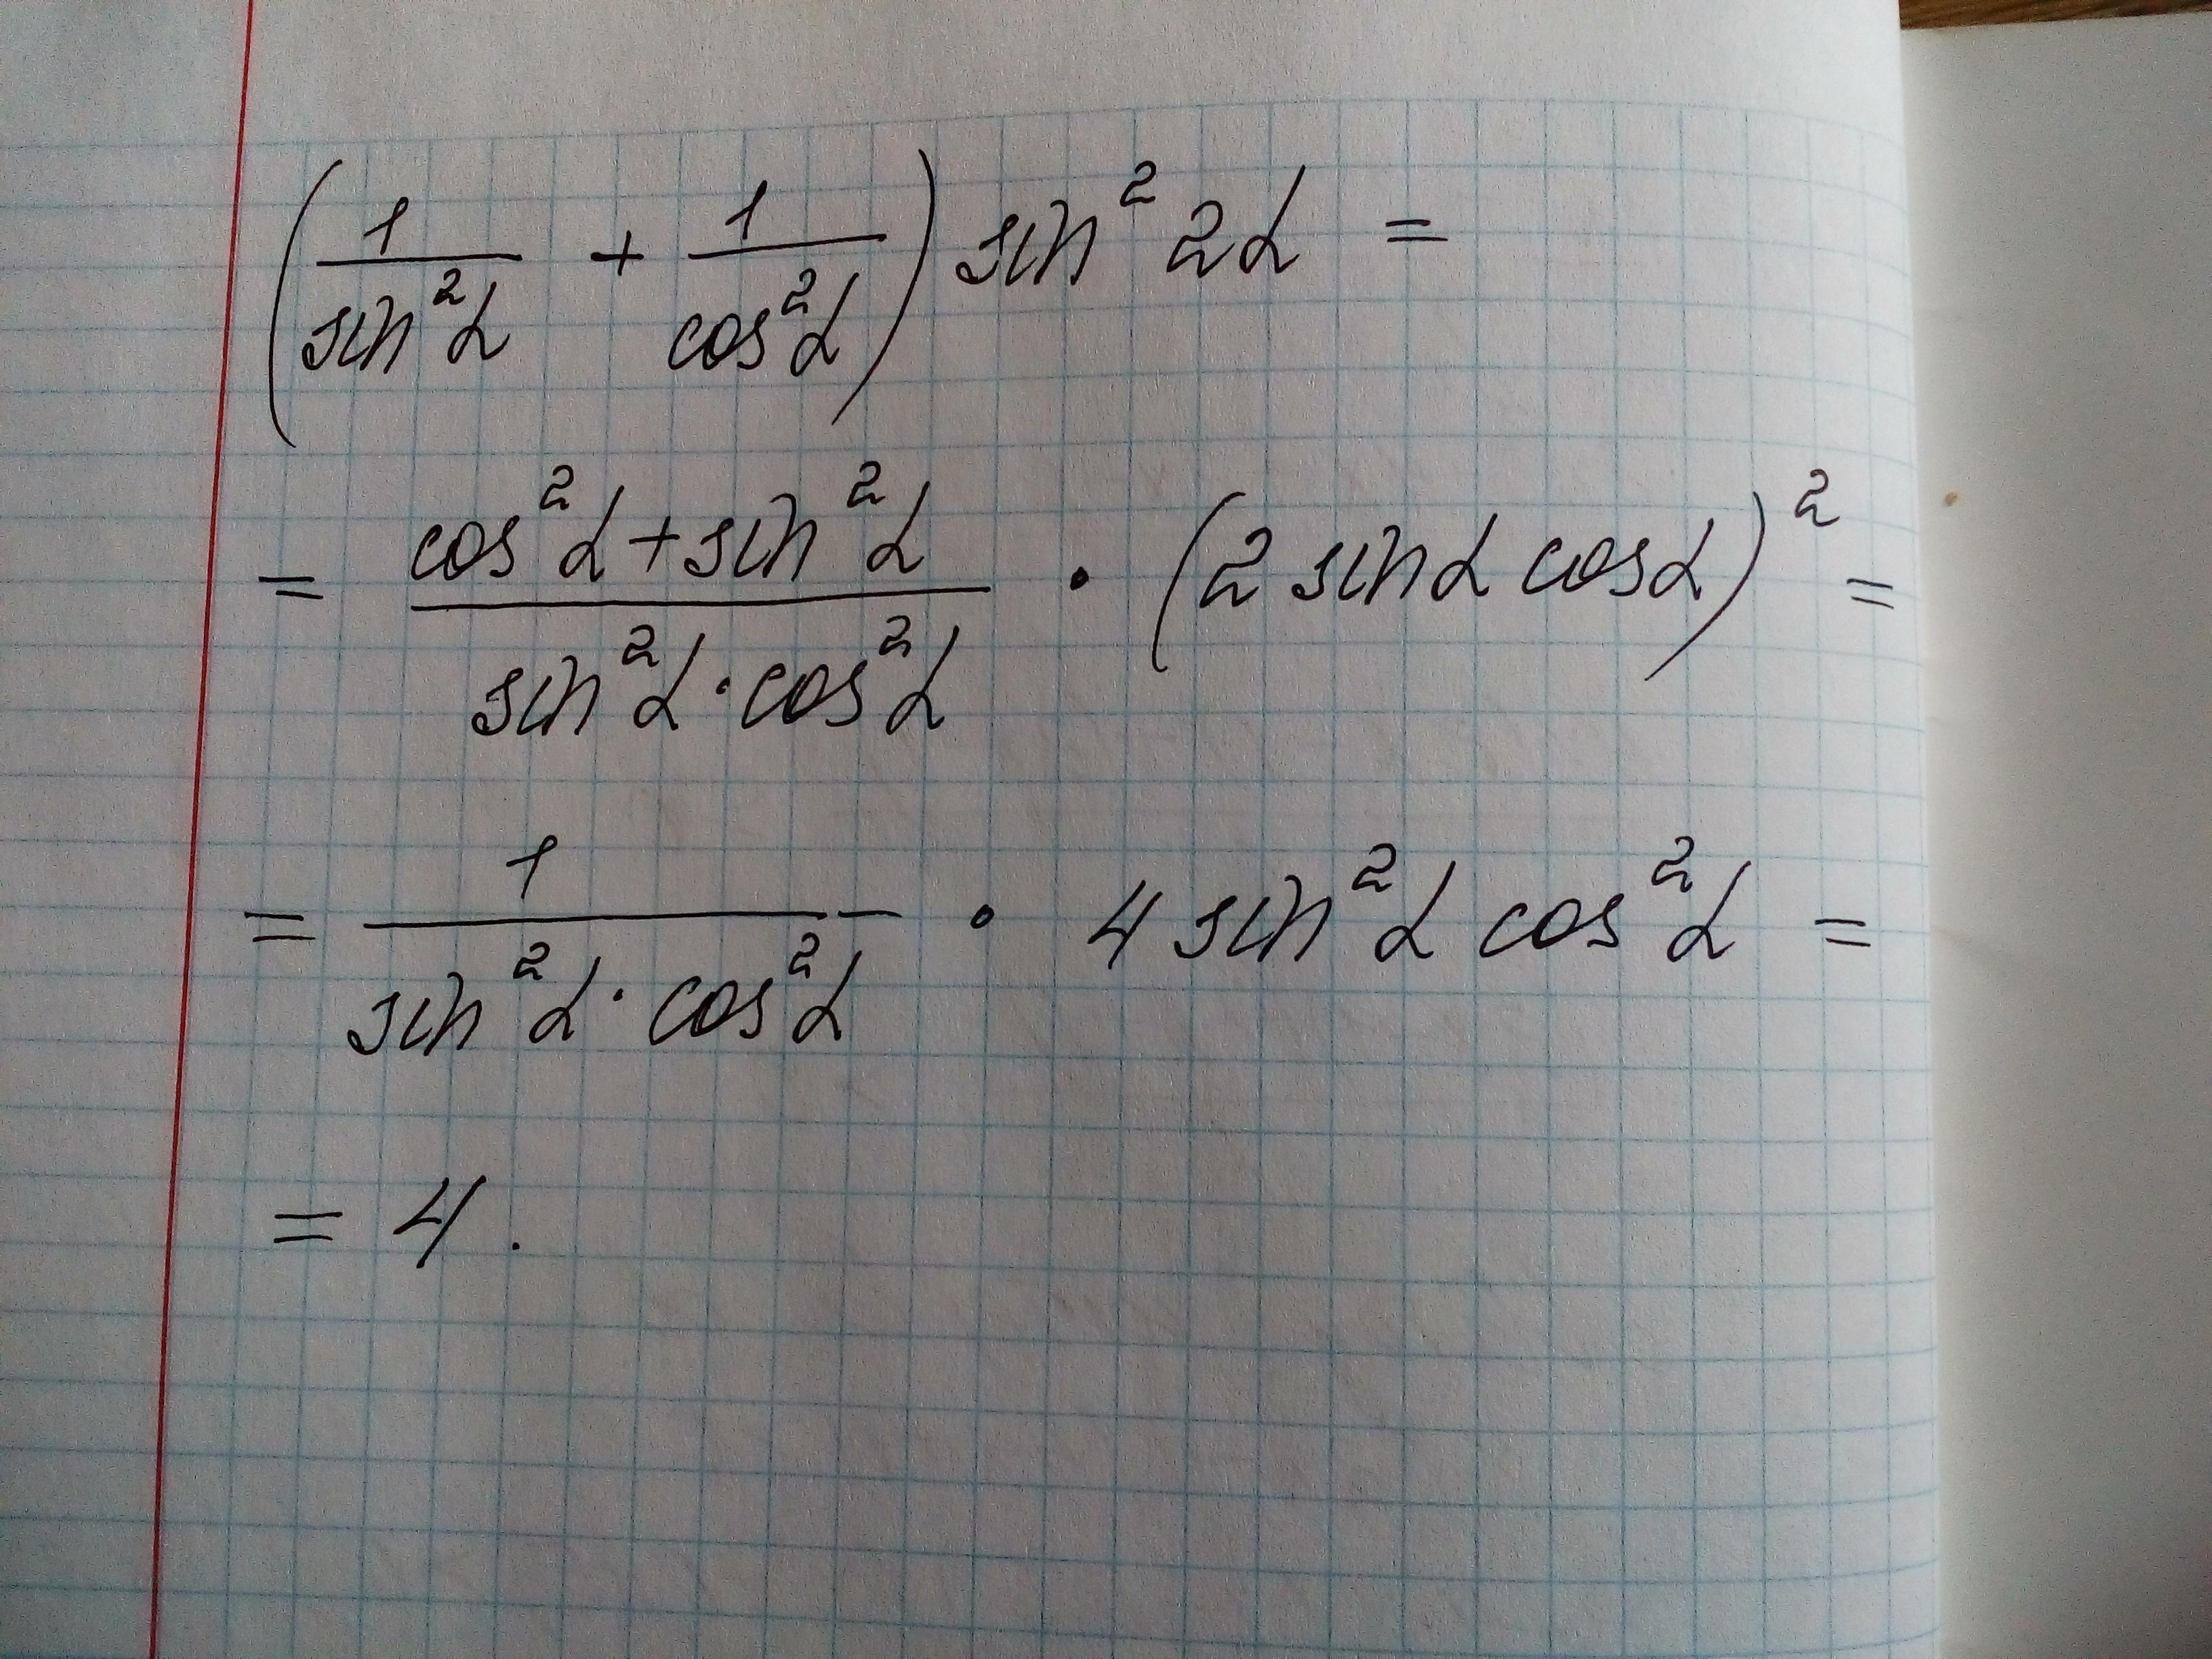 (1/sin²α + 1/cos²α) sin²2α =
= (cos²α + sin²α)/(sin²α · cos²α) · (2 sinα cosα)² =
= 1/(sin²α · cos²α) · 4 sin²α cos²α =
= 4.